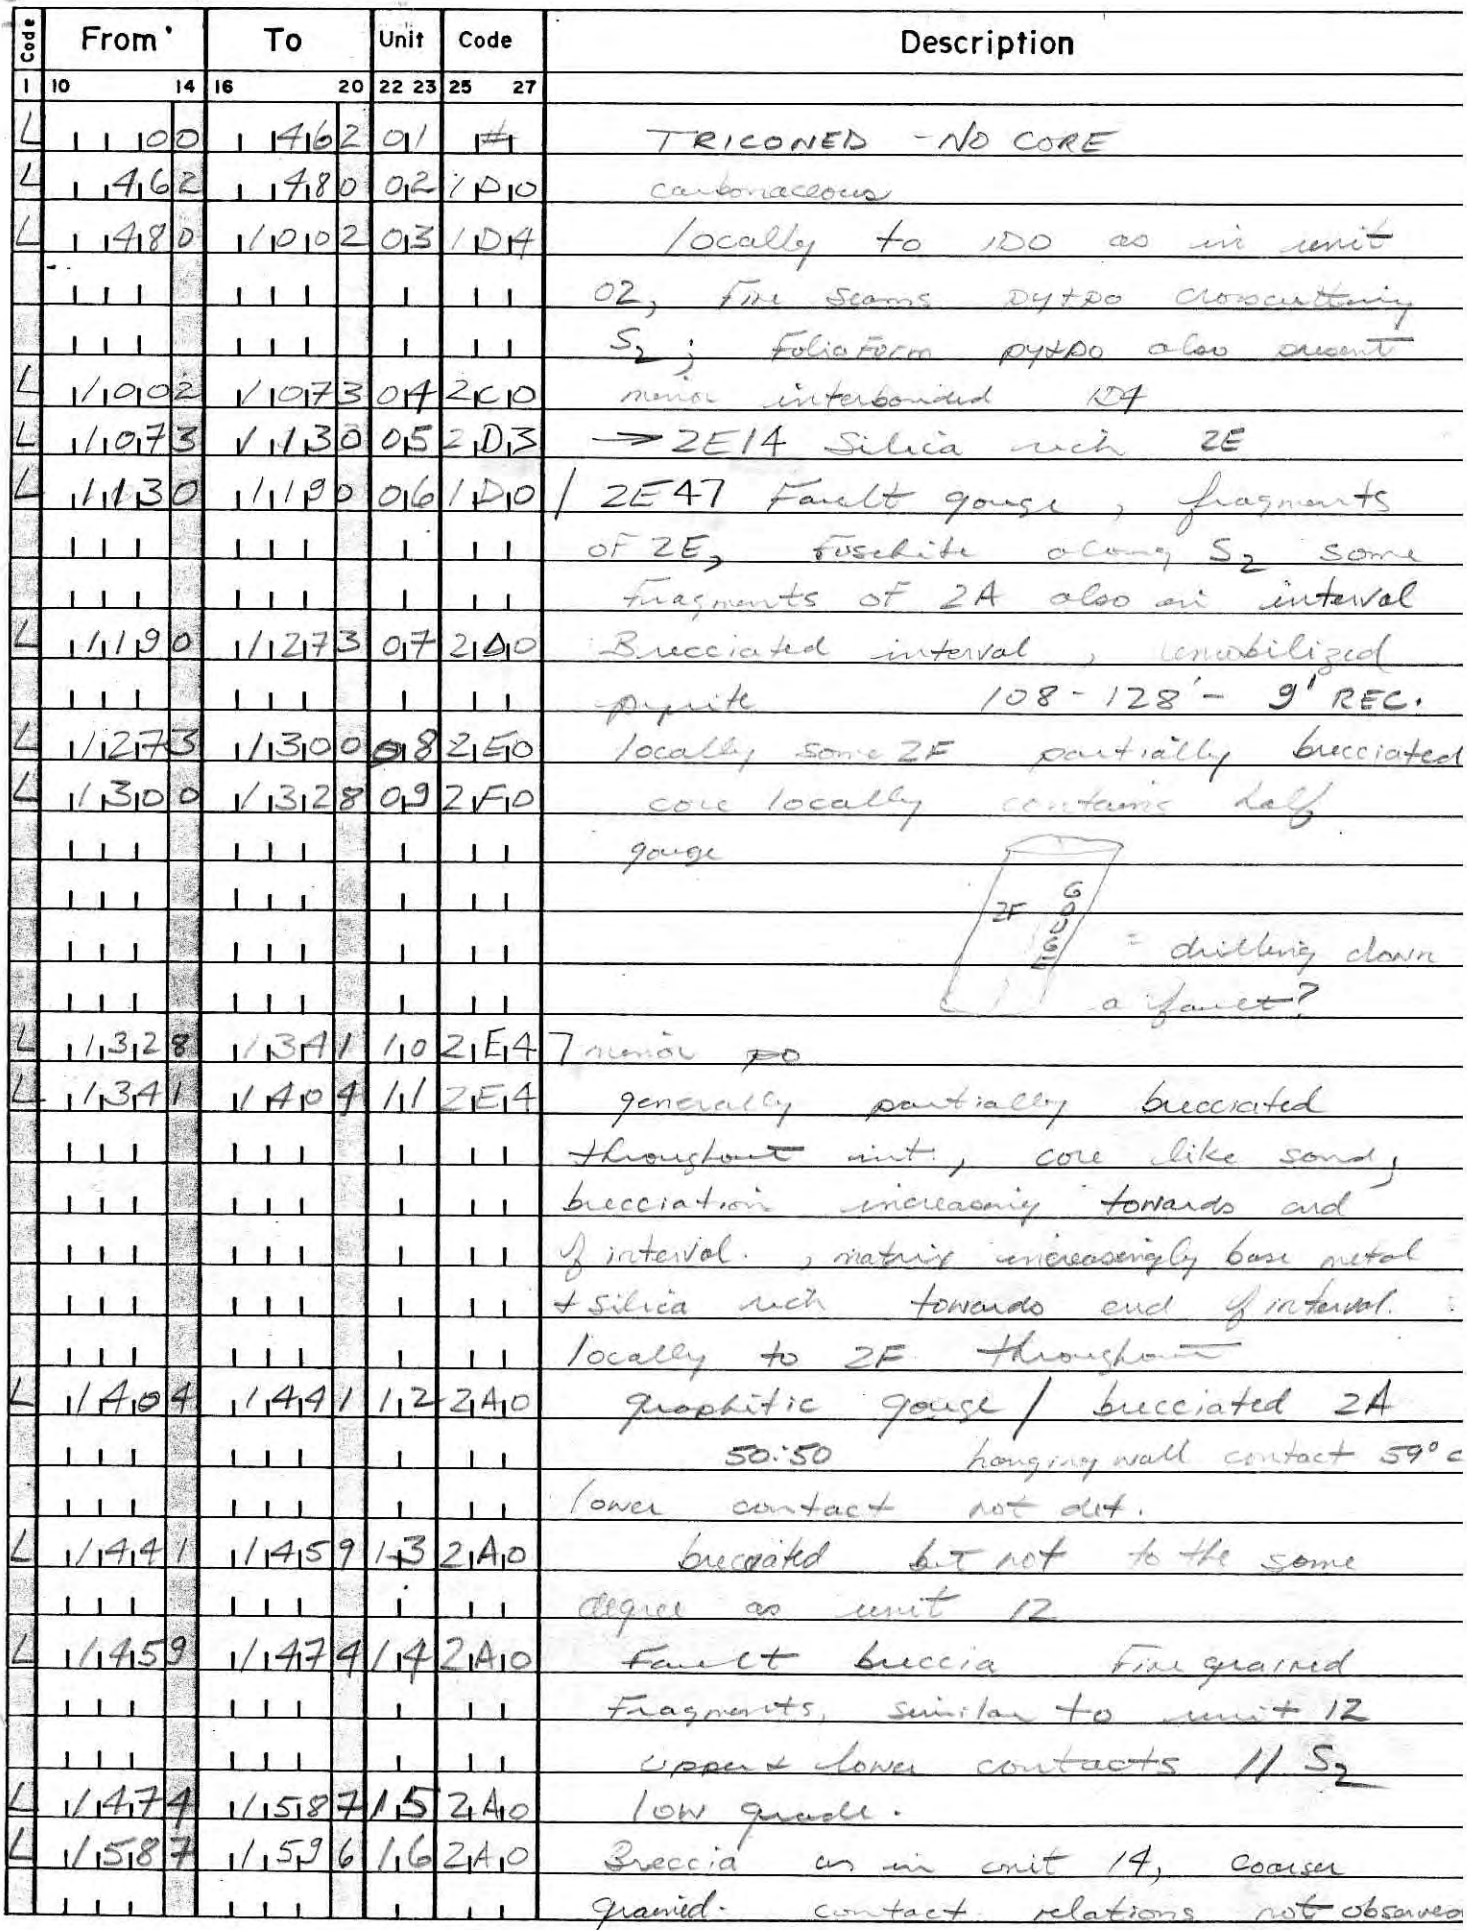 Code From' To Unit Code Description
1 10 14 16 20 22 23 25 27
L 00 462 01 # TRICONED - NO CORE
L 462 480 02 1D0 carbonaceous
L 480 1002 03 1D4 locally to 1D0 as in unit
02, Fine seams py+po crosscutting
S2 ; FoliaForm py+po also present
L 1002 1073 04 2C0 minor interbanded 1D4
L 1073 1130 05 2D3 → 2E14 Silica rich 2E
L 1130 1190 06 1D0 / 2E47 Fault gouge , fragments
OF 2E, Fuschite along S2 some
Fragments OF 2A also in interval
L 1190 1273 07 2A0 Brecciated interval , remobilized
pyrite 108 - 128' - 9' REC.
L 1273 1300 08 2E0 locally some 2F partially brecciated
L 1300 1328 09 2F0 core locally contains half
gouge
2F GOUGE
= drilling down
a fault?
L 1328 1341 10 2E4 7 minor po
L 1341 1404 11 2E4 generally partially brecciated
throughout int., core like sand,
brecciation increasing towards end
of interval. , matrix increasingly base metal
+ Silica rich towards end of interval.
locally to 2F throughout
L 1404 1441 12 2A0 graphitic gouge / brecciated 2A
50:50 hanging wall contact 59° c
lower contact not det.
L 1441 1459 13 2A0 brecciated but not to the same
degree as unit 12
L 1459 1474 14 2A0 Fault breccia Fine grained
Fragments, similar to unit 12
upper + lower contacts // S2
L 1474 1587 15 2A0 low grade.
L 1587 1596 16 2A0 Breccia as in unit 14, coarser
grained. contact relations not observed